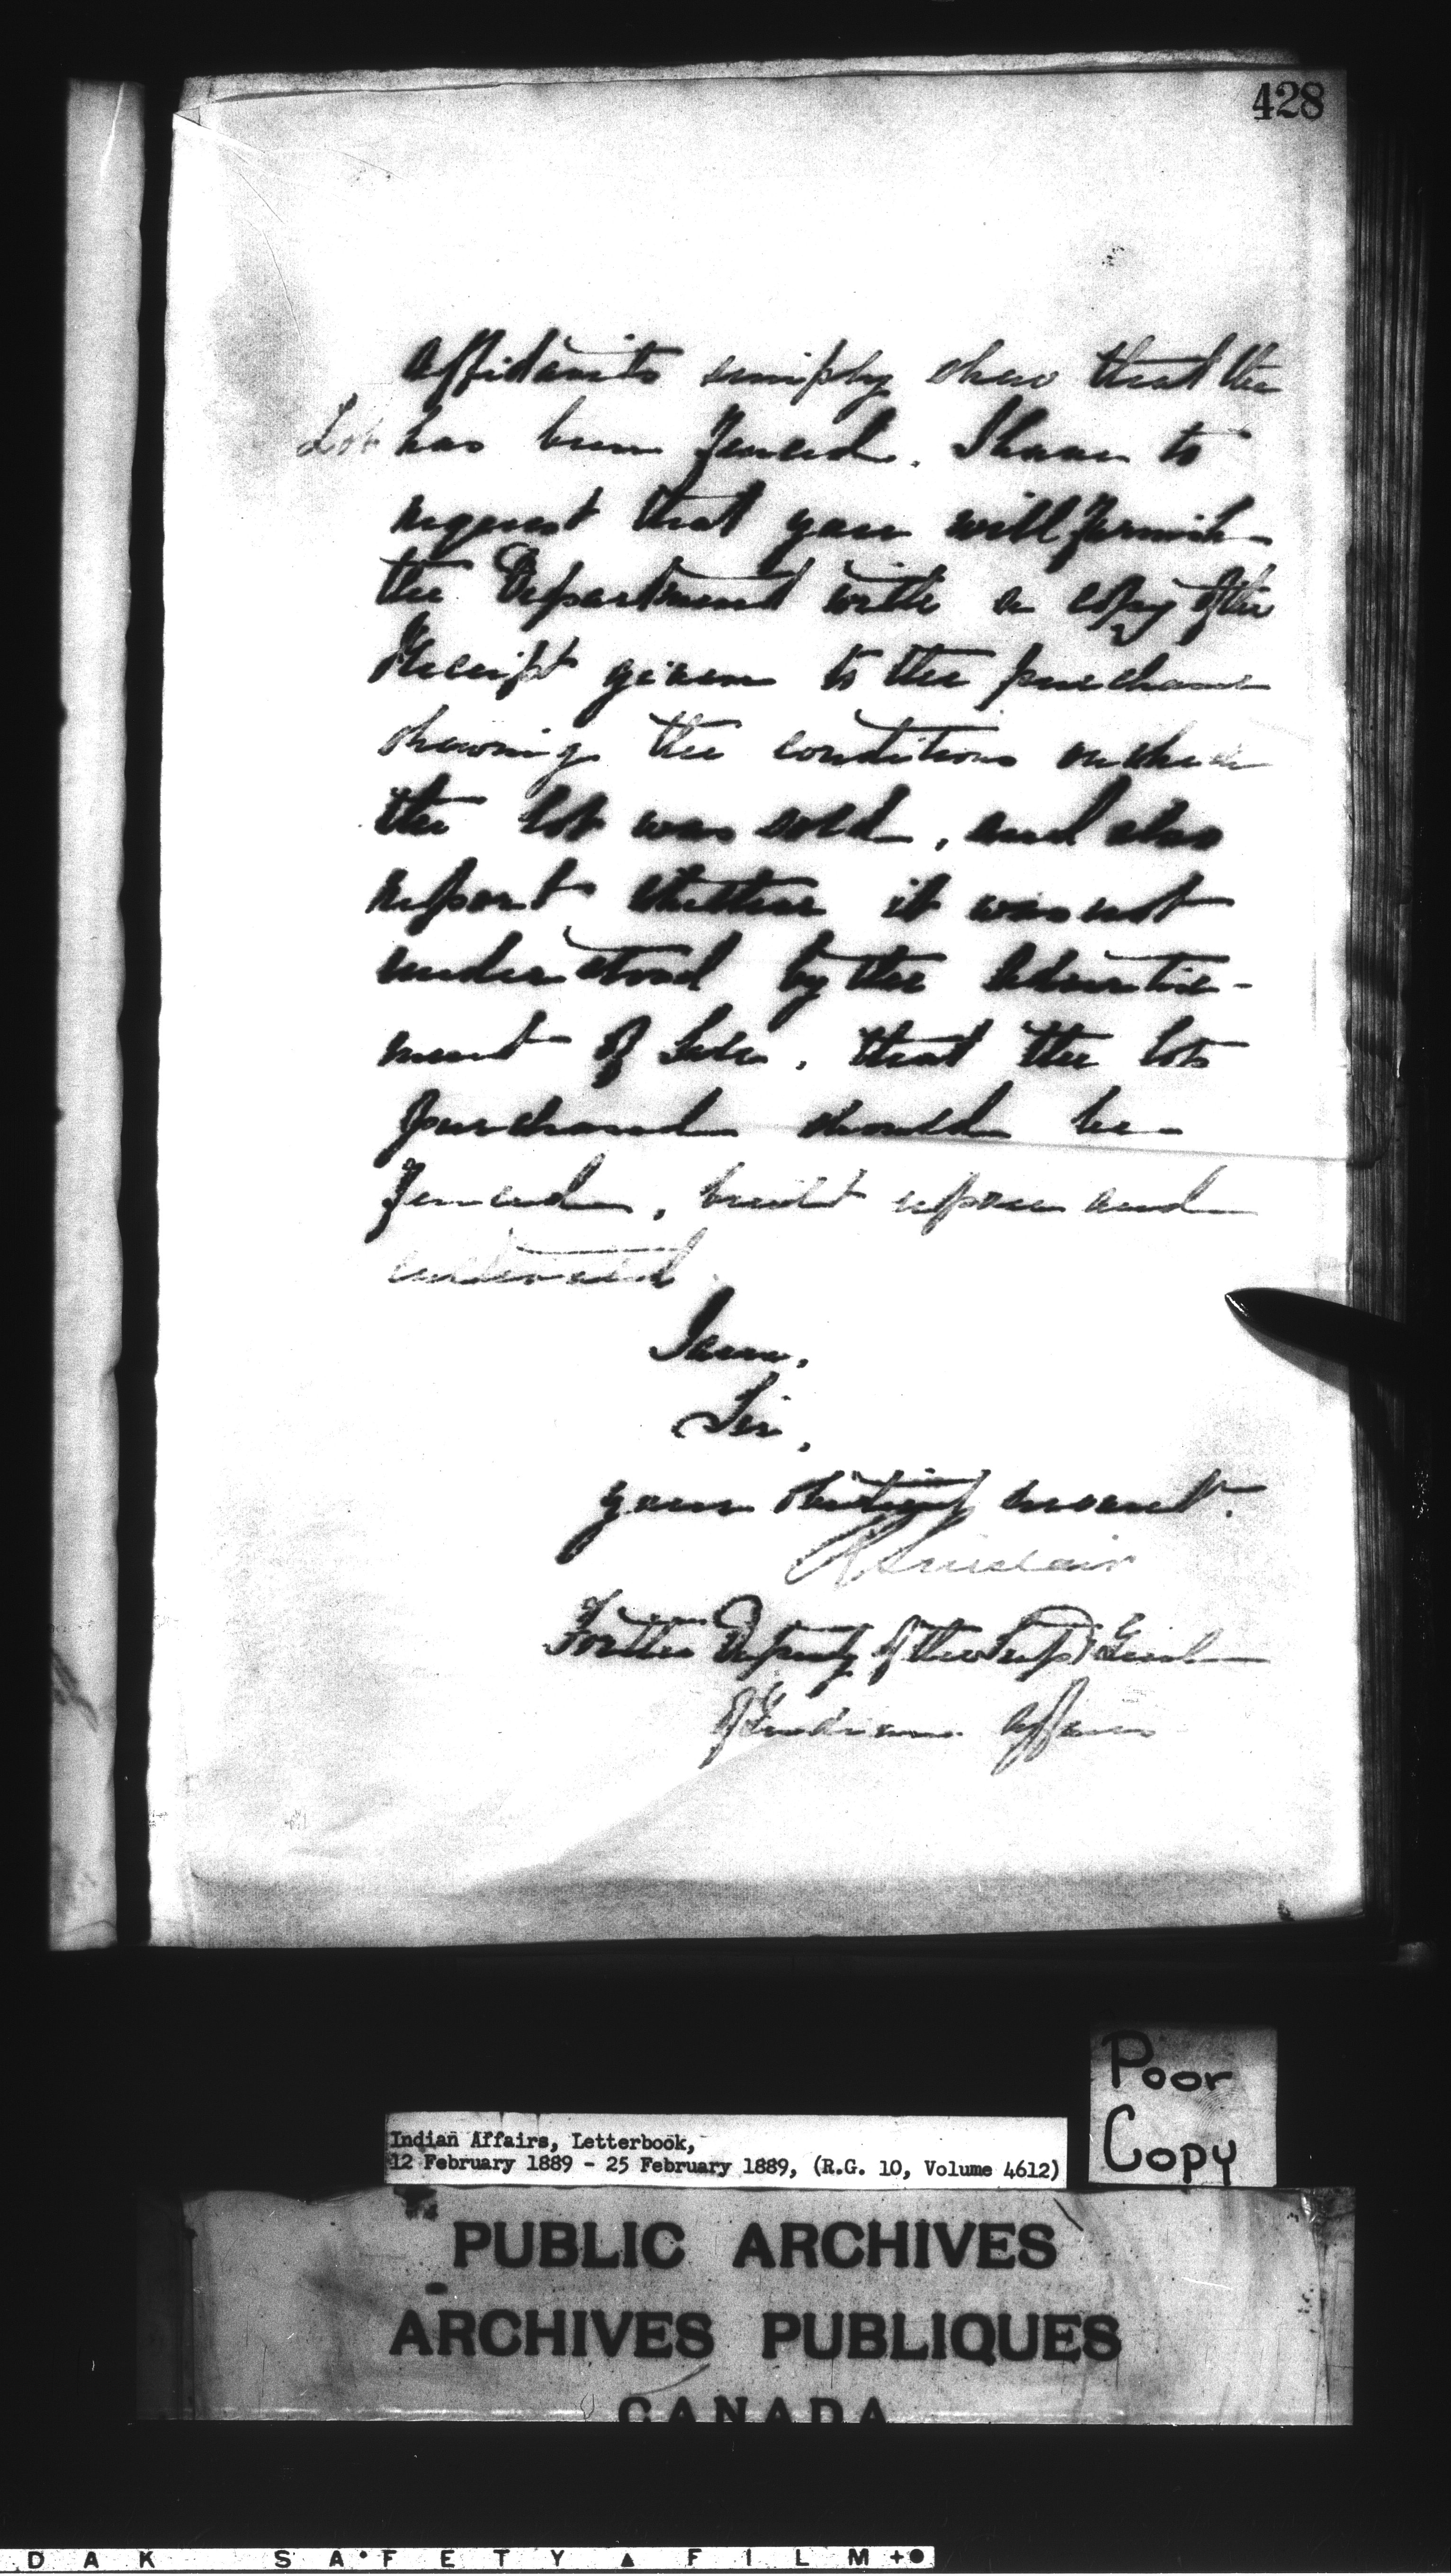 428
Affidavits simply shew that the
Lot has been fenced. I have to
request that you will furnish
the Department with a copy of the
Receipt given to the purchaser
showing the conditions on which
the lot was sold, and also
report whether it was not
understood by the Advertise-
ment of Sale, that the lots
purchased should be
fenced, built upon and
cultivated
I am,
Sir,
your obedient servant.
R Sinclair
For the Deputy of the Supt Genl
of Indian Affairs
Poor
Copy
Indian Affairs, Letterbook,
12 February 1889 - 25 February 1889, (R.G. 10, Volume 4612)
PUBLIC ARCHIVES
ARCHIVES PUBLIQUES
CANADA
DAK SAFETY ▲ FILM +●